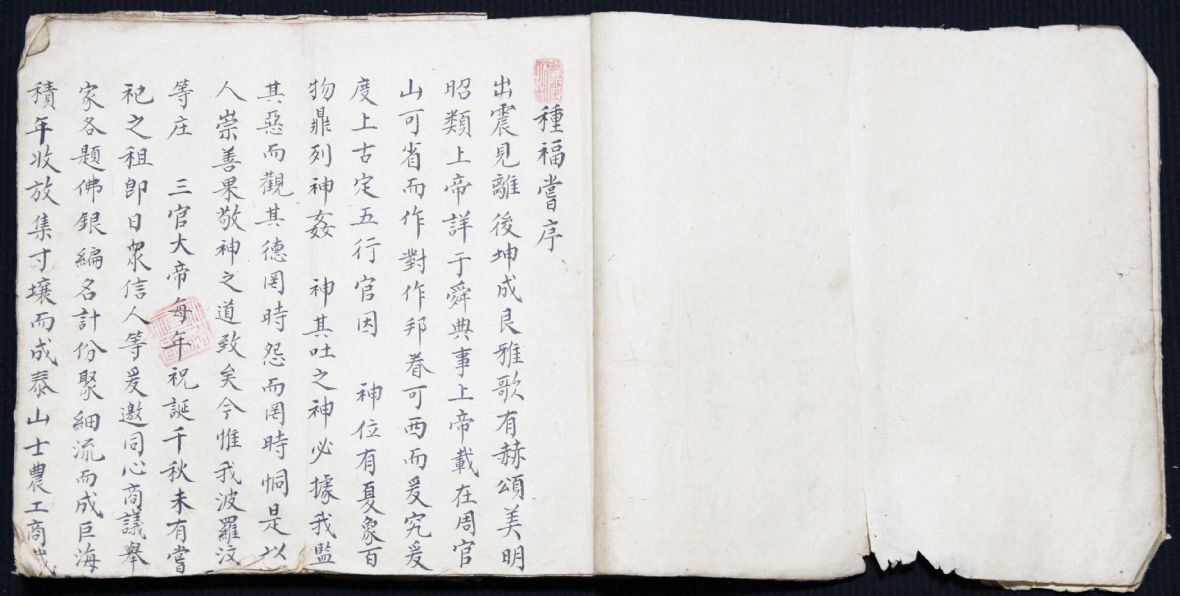 種福嘗序
出震見離後坤成艮雅歌有赫頌美明
昭類上帝詳于舜典事上帝載在周官
山可省而作對作邦眷可西而爰究爰
度上古定五行官因 神位有夏象百
物鼎列神姦 神其吐之神必據我監
其惡而觀其德罔時怨而罔時恫是以
人崇善果敬神之道致矣今惟我波羅汶
等庄 三官大帝每年祝誕千秋未有嘗
祀之祖即日眾信人等爰邀同心商議舉
家各題佛銀編名計份聚細流而成巨海
積年收放集寸壤而成泰山士農工商